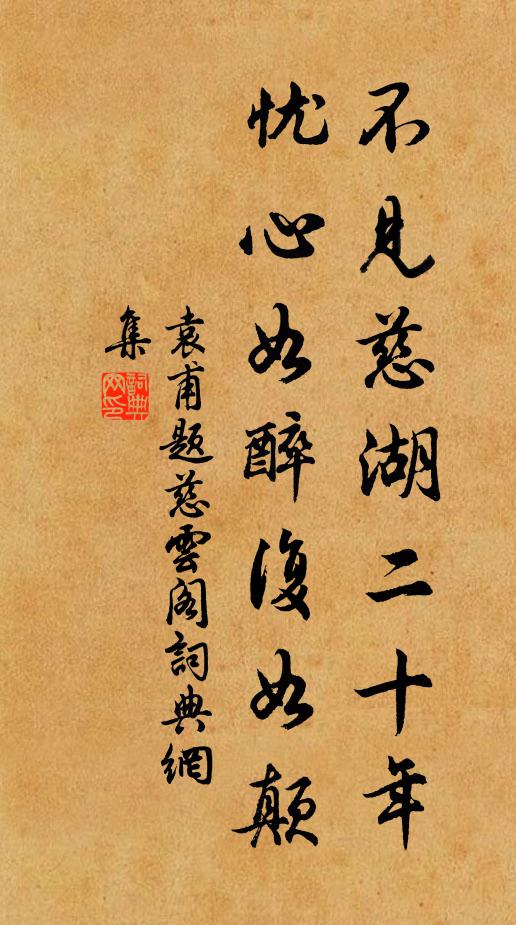 不見慈湖二十年
忧心如醉復如顛
袁甫題慈雲閣詞典網
集
詞典網印